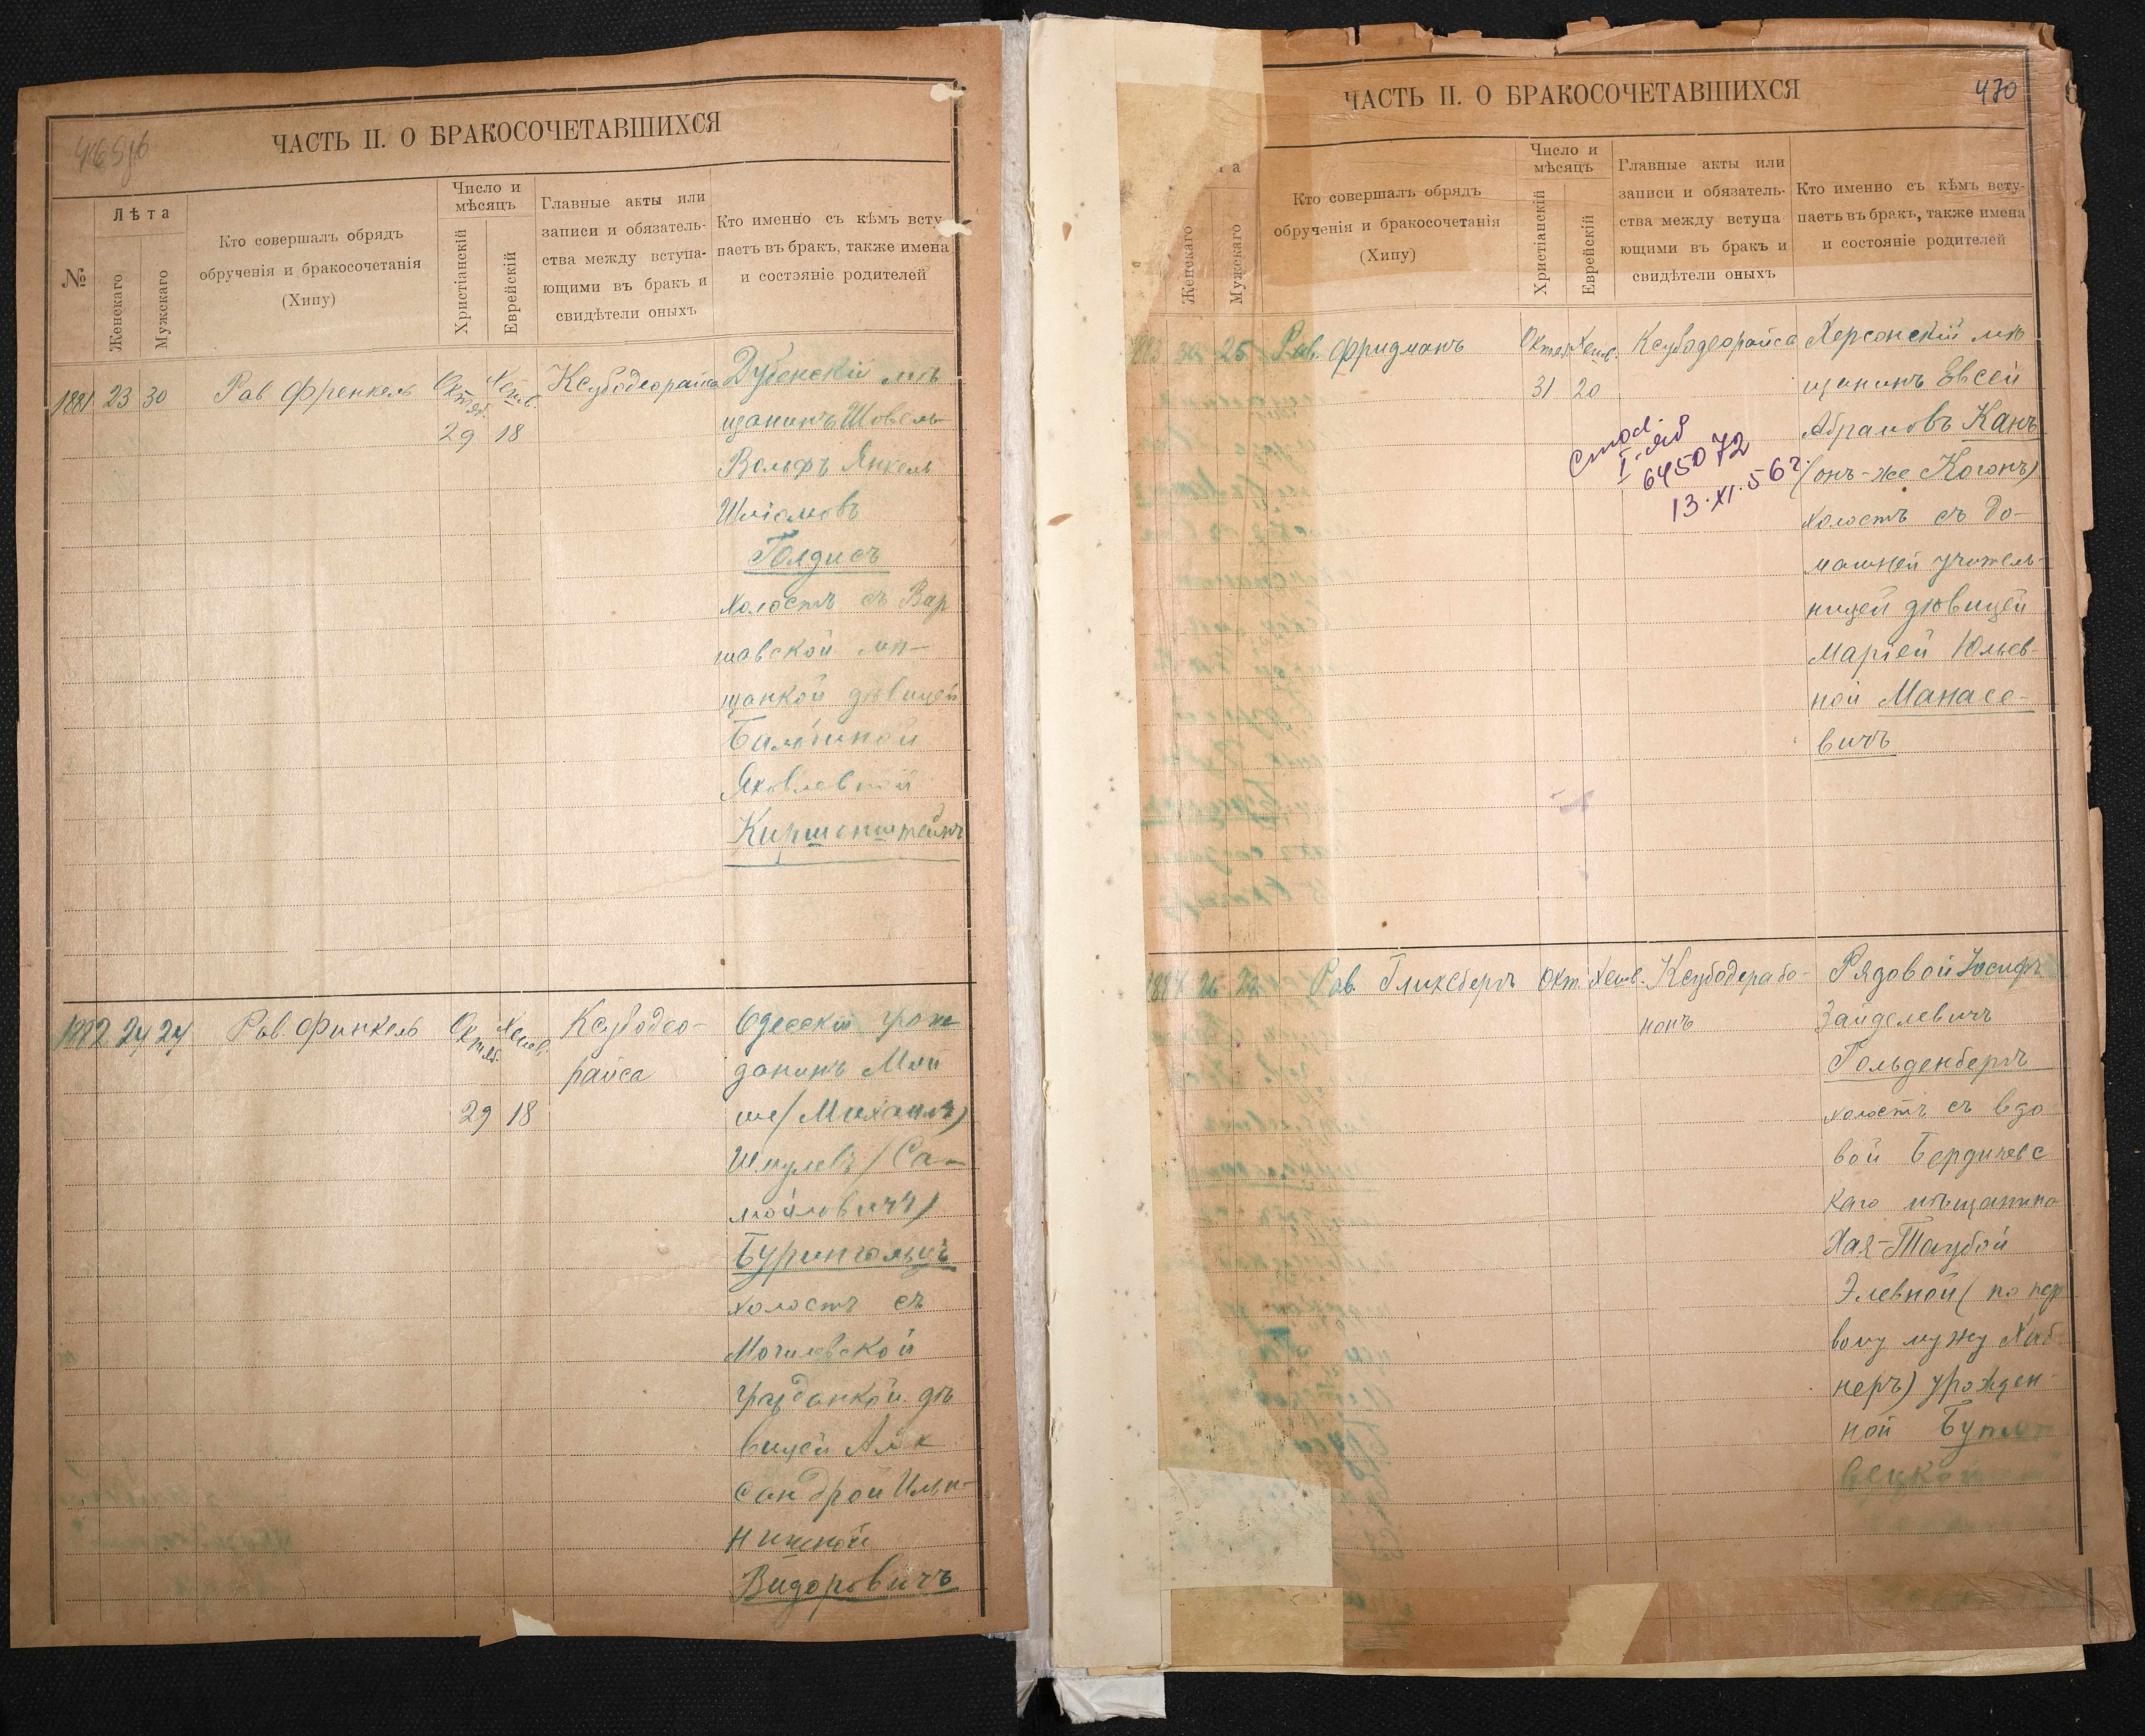 469об
ЧАСТЬ II. О БРАКОСОЧЕТАВШИХСЯ
№
Лѣта
Женскаго
Мужскаго
Кто совершалъ обрядъ
обрученія и бракосочетанія
(Хипу)
Число и
мѣсяцъ
Христіанскій
Еврейскій
Главные акты или
записи и обязатель-
ства между вступа-
ющими въ бракъ и
свидѣтели оныхъ
Кто именно съ кѣмъ всту-
паетъ въ бракъ, также имена
и состояніе родителей
1881 23 30 Рав Френкель Октяб. Хешв. Ксубодеорайса
29 18
Дубенскій мѣ
щанинъ Шовель
Вольфъ Янкель
Шліомовъ
Голдисъ
холостъ съ Вар
шавской мѣ-
щанкой дѣвицей
Бальбиной
Яковлевной
Киршенштейнъ
1882 24 24 Рав. Финкель Октяб. Хешв. Ксубодео-
райса
29 18
Одесскій граж
данинъ Мой
ше (Михаилъ)
Шмулевъ (Са-
мойловичъ)
Бурингольцъ
холостъ съ
Могилевской
гражданкой дѣ
вицей Алек
сандрой Ильи-
нишной
Видоровичъ
470
ЧАСТЬ II. О БРАКОСОЧЕТАВШИХСЯ
Женскаго
Мужскаго
Кто совершалъ обрядъ
обрученія и бракосочетанія
(Хипу)
Число и
мѣсяцъ
Христіанскій
Еврейскій
Главные акты или
записи и обязатель-
ства между вступа
ющими въ бракъ и
свидѣтели оныхъ
Кто именно съ кѣмъ всту-
паетъ въ бракъ, также имена
и состояніе родителей
1883 30 25 Рав. Фридманъ Октяб. Хешв. Ксубодеорайса
31 20
645072
13.XI.56г.
Херсонскій мѣ
щанинъ Евсей
Абрамовъ Канъ
(онъ-же Когонъ)
холостъ съ до-
машней учитель-
ницей дѣвицей
Маріей Юльев-
ной Манасе-
вичъ
1884 26 22 Рав. Гликсбергъ Окт. Хешв. Ксубодерабо-
нонъ
Рядовой Іосифъ
Зайделевичъ
Гольденбергъ
холостъ съ вдо
вой Бердичевс
каго мѣщанина
Хая-Таубой
Элевной (по пер
вому мужу
неръ) урожден
ной